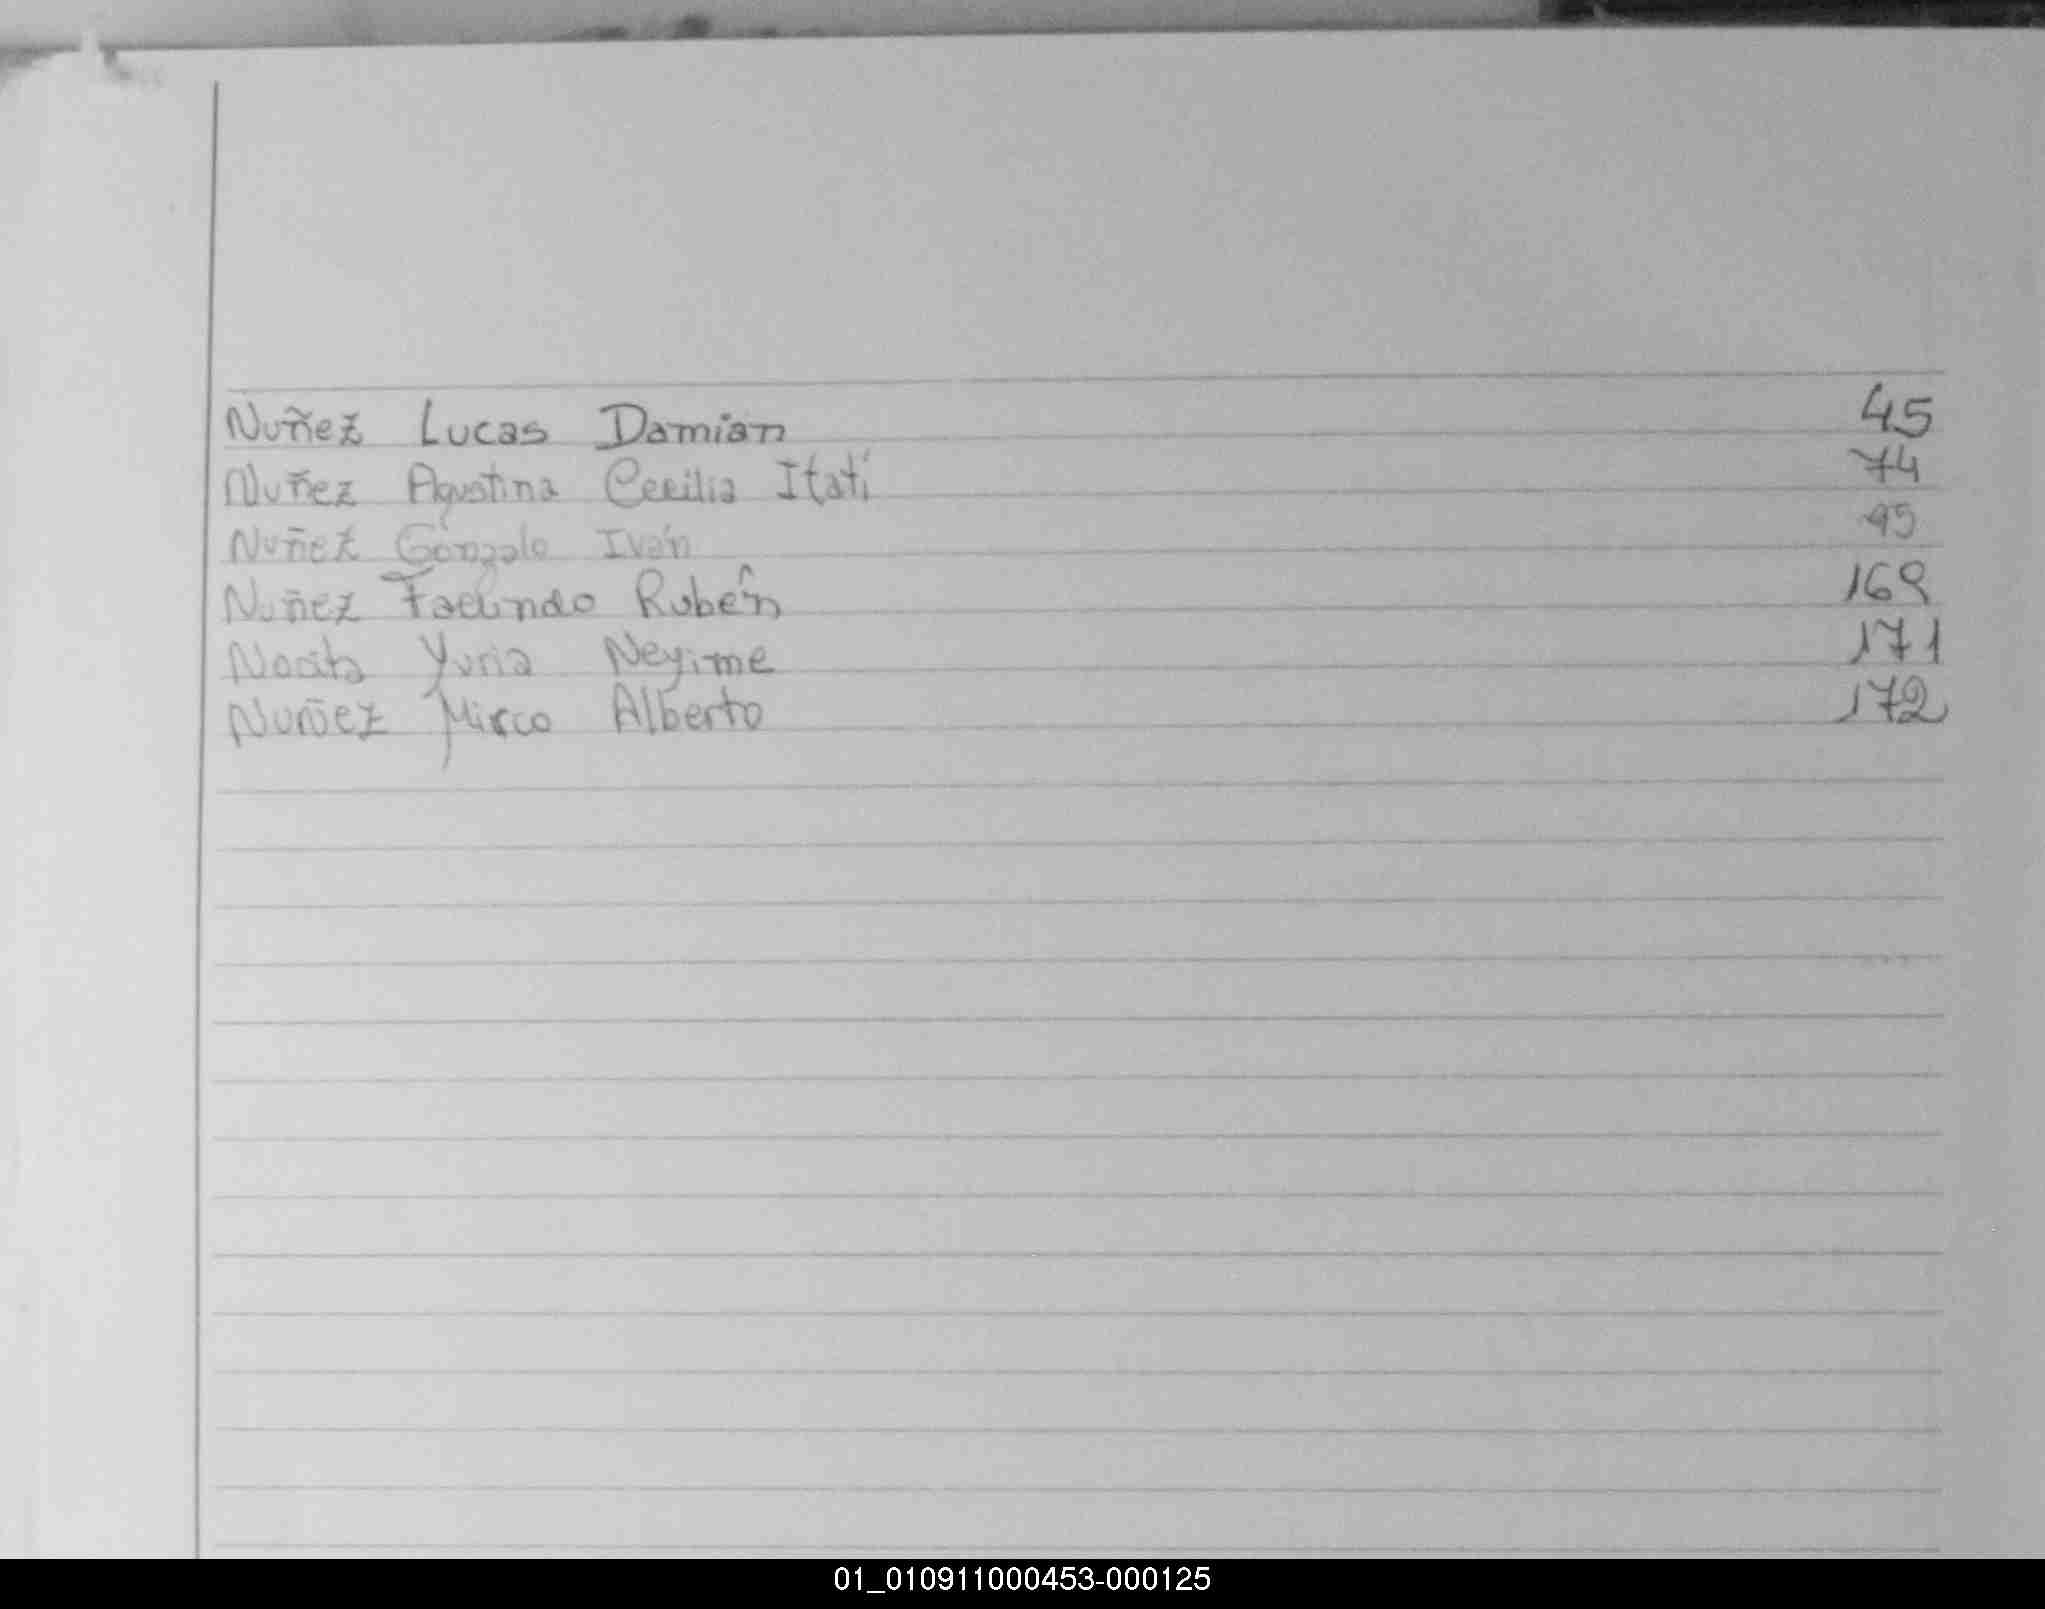 Nuñez Lucas Damian 45
Nuñez Agustina Cecilia Itatí 74
Nuñez Gonzalo Iván 95
Nuñez Facundo Rubén 169
Yuria Neyime 171
Nuñez Mirco Alberto 172
01_010911000453-000125